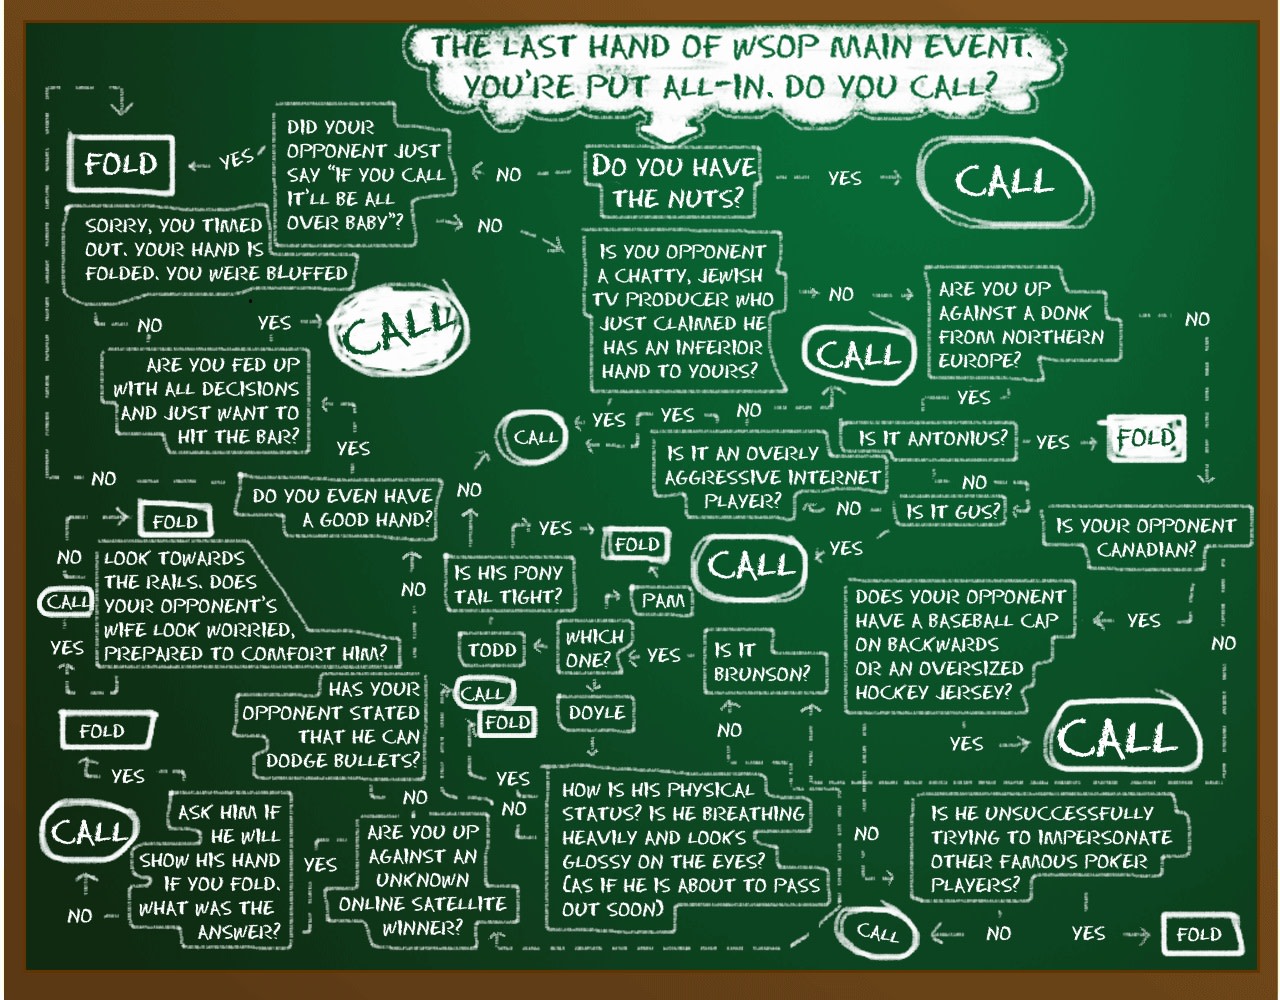 THE LAST HAND OF WSOP MAIN EVENT.
YOU'RE PUT ALL-IN. DO YOU CALL?
DO YOU HAVE
THE NUTS?
YES
CALL
NO
DID YOUR
OPPONENT JUST
SAY "IF YOU CALL
IT'LL BE ALL
OVER BABY"?
YES
FOLD
NO
SORRY, YOU TIMED
OUT. YOUR HAND IS
FOLDED. YOU WERE BLUFFED
NO
YES
CALL
ARE YOU FED UP
WITH ALL DECISIONS
AND JUST WANT TO
HIT THE BAR?
YES
NO
DO YOU EVEN HAVE
A GOOD HAND?
IS YOU OPPONENT
A CHATTY, JEWISH
TV PRODUCER WHO
JUST CLAIMED HE
HAS AN INFERIOR
HAND TO YOURS?
NO
YES
CALL
ARE YOU UP
AGAINST A DONK
FROM NORTHERN
EUROPE?
NO
YES
CALL
YES
NO
IS IT ANTONIUS?
YES
FOLD
IS IT AN OVERLY
AGGRESSIVE INTERNET
PLAYER?
NO
NO
IS IT GUS?
YES
CALL
IS YOUR OPPONENT
CANADIAN?
YES
NO
DOES YOUR OPPONENT
HAVE A BASEBALL CAP
ON BACKWARDS
OR AN OVERSIZED
HOCKEY JERSEY?
YES
CALL
NO
IS HE UNSUCCESSFULLY
TRYING TO IMPERSONATE
OTHER FAMOUS POKER
PLAYERS?
NO
CALL
YES
FOLD
NO
IS HIS PONY
TAIL TIGHT?
YES
FOLD
PAM
TODD
WHICH
ONE?
YES
IS IT
BRUNSON?
DOYLE
NO
HOW IS HIS PHYSICAL
STATUS? IS HE BREATHING
HEAVILY AND LOOKS
GLOSSY ON THE EYES?
(AS IF HE IS ABOUT TO PASS
OUT SOON)
YES
NO
CALL
FOLD
FOLD
NO
CALL
YES
LOOK TOWARDS
THE RAILS. DOES
YOUR OPPONENT'S
WIFE LOOK WORRIED,
PREPARED TO COMFORT HIM?
NO
HAS YOUR
OPPONENT STATED
THAT HE CAN
DODGE BULLETS?
NO
FOLD
YES
CALL
NO
ASK HIM IF
HE WILL
SHOW HIS HAND
IF YOU FOLD.
WHAT WAS THE
ANSWER?
YES
ARE YOU UP
AGAINST AN
UNKNOWN
ONLINE SATELLITE
WINNER?